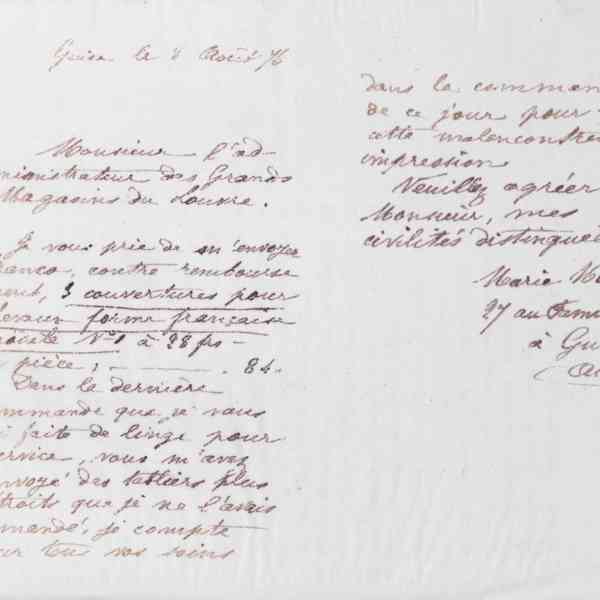 Guise le 8 Août 76
Monsieur l'ad-
ministrateur des Grands
Magasins du Louvre.
Je vous prie de m'envoyer
franco, contre rembourse
ment, 3 couvertures pour
chevaux forme française
N°1 à 28 frs
pièce; 84.
Dans la dernière
commande que je vous
ai faite de linge pour
service, vous m'avez
envoyé des tabliers plus
étroits que je ne l'avais
mandé, je compte
sur tous vos soins
dans la comman
de ce jour pour
cette malencontre
impression
Veuillez agréer
Monsieur, mes
civilités distinguée
Marie
27 au Fami
à Gu